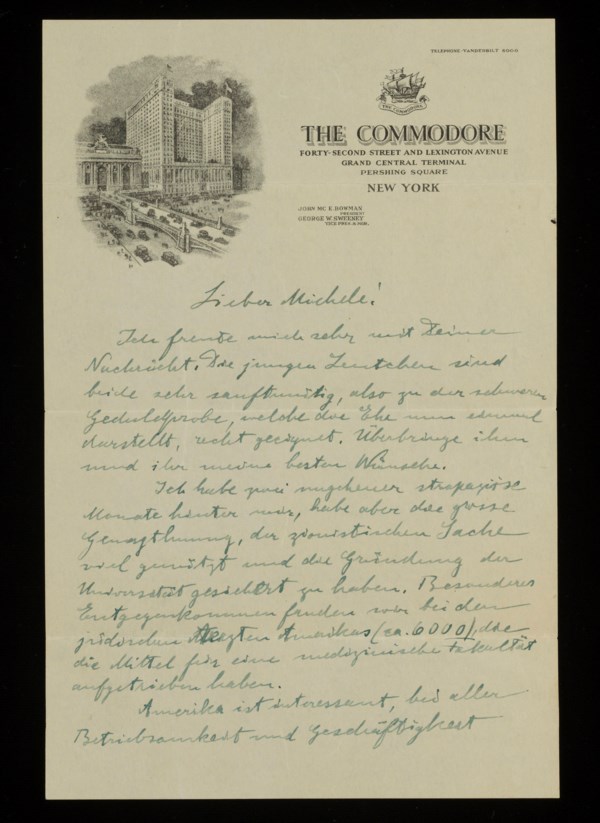 TELEPHONE VANDERBILT 6000
THE COMMODORE
THE COMMODORE
FORTY-SECOND STREET AND LEXINGTON AVENUE
GRAND CENTRAL TERMINAL
PERSHING SQUARE
NEW YORK
JOHN MC E. BOWMAN
PRESIDENT
GEORGE W. SWEENEY
VICE PRES. & MGR.
Lieber Michele!
Ich freute mich sehr mit Deiner
Nachricht. Die jungen Leutchen sind
beide sehr sanftmütig, also zu der schweren
Geduldprobe, welche die Ehe nun einmal
darstellt, recht geeignet. Überbringe ihm
und ihr meine besten Wünsche.
Ich habe zwei ungeheuer strapaziöse
Monate hinter mir, habe aber die grosse
Genugthuung, der zionistischen Sache
viel genützt und die Gründung der
Universität gesichert zu haben. Besonderes
Entgegenkommen fanden wir bei den
jüdischen Aerzten Amerikas (ca. 6000), die
die Mittel für eine medizinische Fakultät
aufgetrieben haben.
Amerika ist interessant, bei aller
Betriebsamkeit und Geschäftigkeit